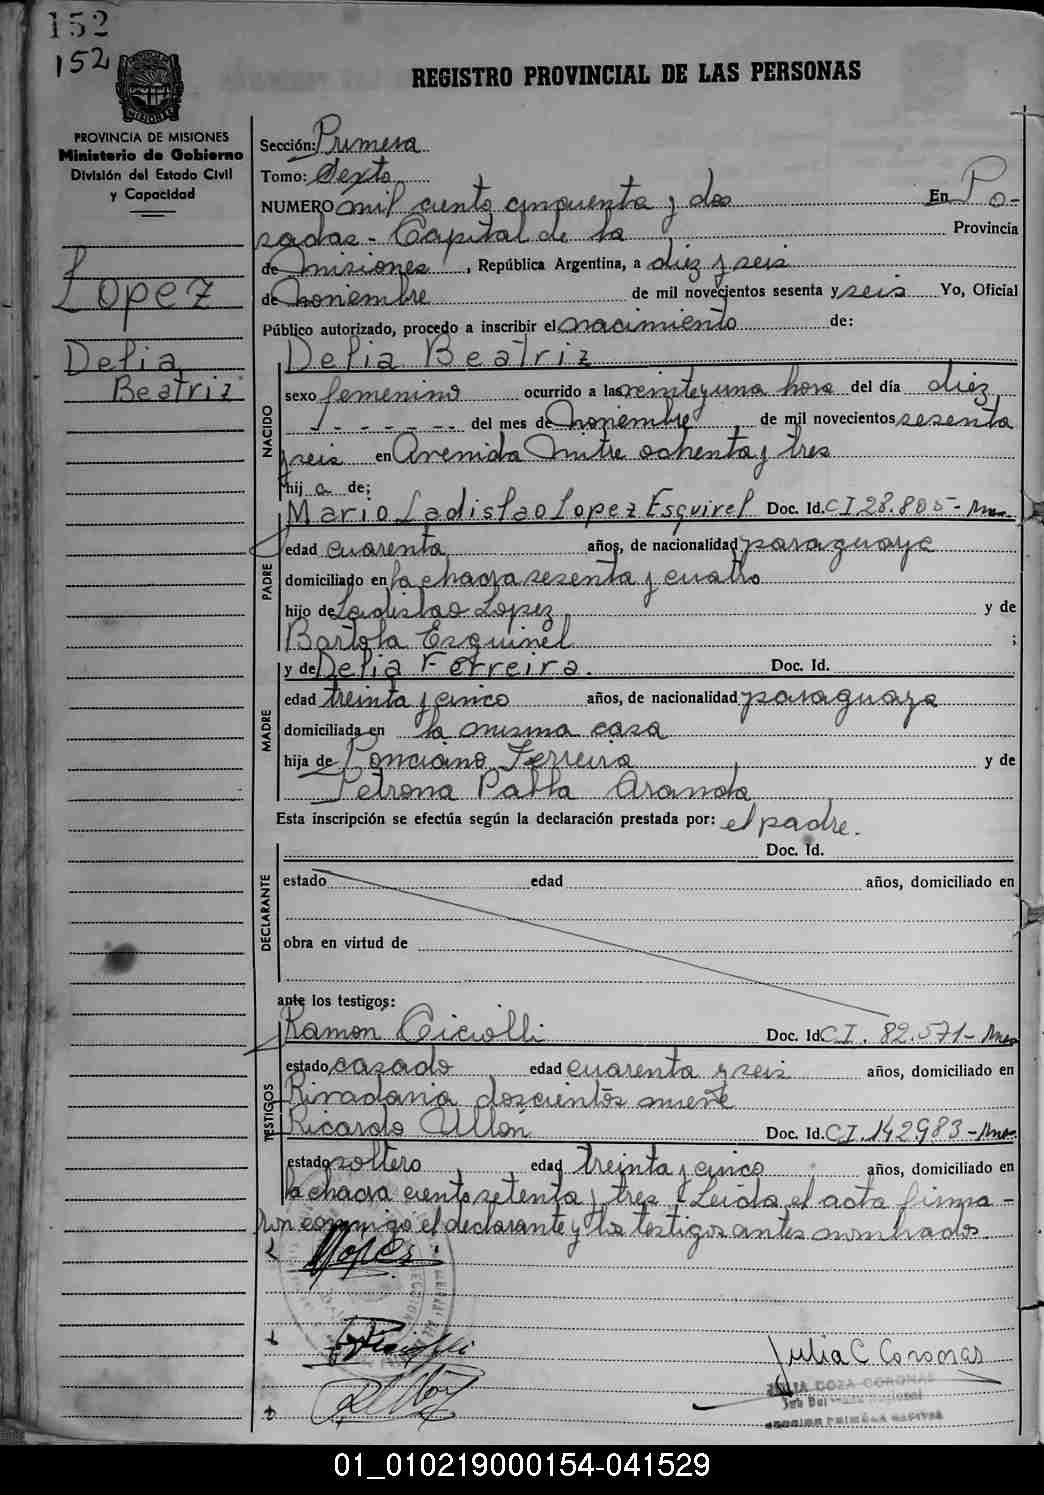 152
152
PROVINCIA DE MISIONES
Ministerio de Gobierno
División del Estado Civil
y Capacidad
Lopez
Delia
Beatriz
REGISTRO PROVINCIAL DE LAS PERSONAS
Sección: Primera
Tomo: Sexto
NUMERO mil ciento cincuenta y dos En Po-
sadas - Capital de la Provincia
de Misiones, República Argentina, a diez y seis
de Noviembre de mil novecientos sesenta y seis Yo, Oficial
Público autorizado, procedo a inscribir el nacimiento de:
Delia Beatriz
NACIDO
sexo femenino ocurrido a las veinteyuna hora del día diez
- - - - - - - del mes de Noviembre de mil novecientos sesenta
y seis en Avenida Mitre ochenta y tres
hij a de;
Mario Ladislao Lopez Esquivel Doc. Id. C I 28.805 - Mnes
PADRE
edad cuarenta años, de nacionalidad paraguaya
domiciliado en la chacra sesenta y cuatro
hijo de Ladislao Lopez y de
Bartola Esquivel ;
y de Delia Ferreira. Doc. Id.
MADRE
edad treinta y cinco años, de nacionalidad paraguaya
domiciliada en la misma casa
hija de Ponciano Ferreira y de
Petrona Pabla Aranda
Esta inscripción se efectúa según la declaración prestada por: el padre.
Doc. Id.
DECLARANTE
estado edad años, domiciliado en
obra en virtud de
ante los testigos:
Ramon Ciciolli Doc. Id. C I. 82.571 - Mnes
TESTIGOS
estado casado edad cuarenta y seis años, domiciliado en
Rivadavia doscientos nueve
Ricardo Ullón Doc. Id. C I. 142983 - Mnes.
estado soltero edad treinta y cinco años, domiciliado en
la chacra ciento setenta y tres - Leida el acta firma-
ron conmigo el declarante y los testigos antes nombrados.
MLopez
Julia C Coronas
JULIA DOZA CORONAS
01_010219000154-041529